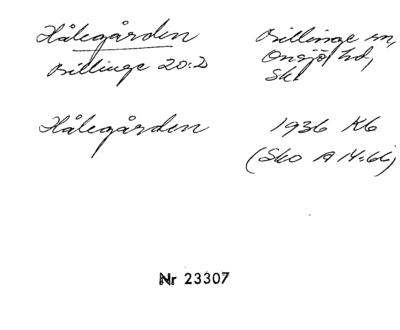 Hålegården
Billinge 20:2
Billinge sn,
Onsjö hd,
Sk.
Hålegården
1936 K6
(Sko A 14:66)
Nr 23307